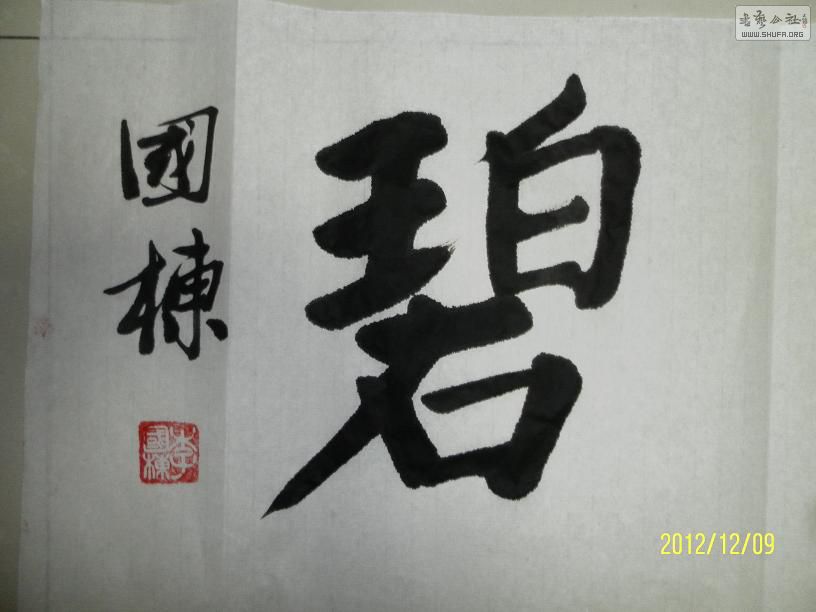 碧
國棟
李國棟
書艺公社
WWW.SHUFA.ORG
2012/12/09